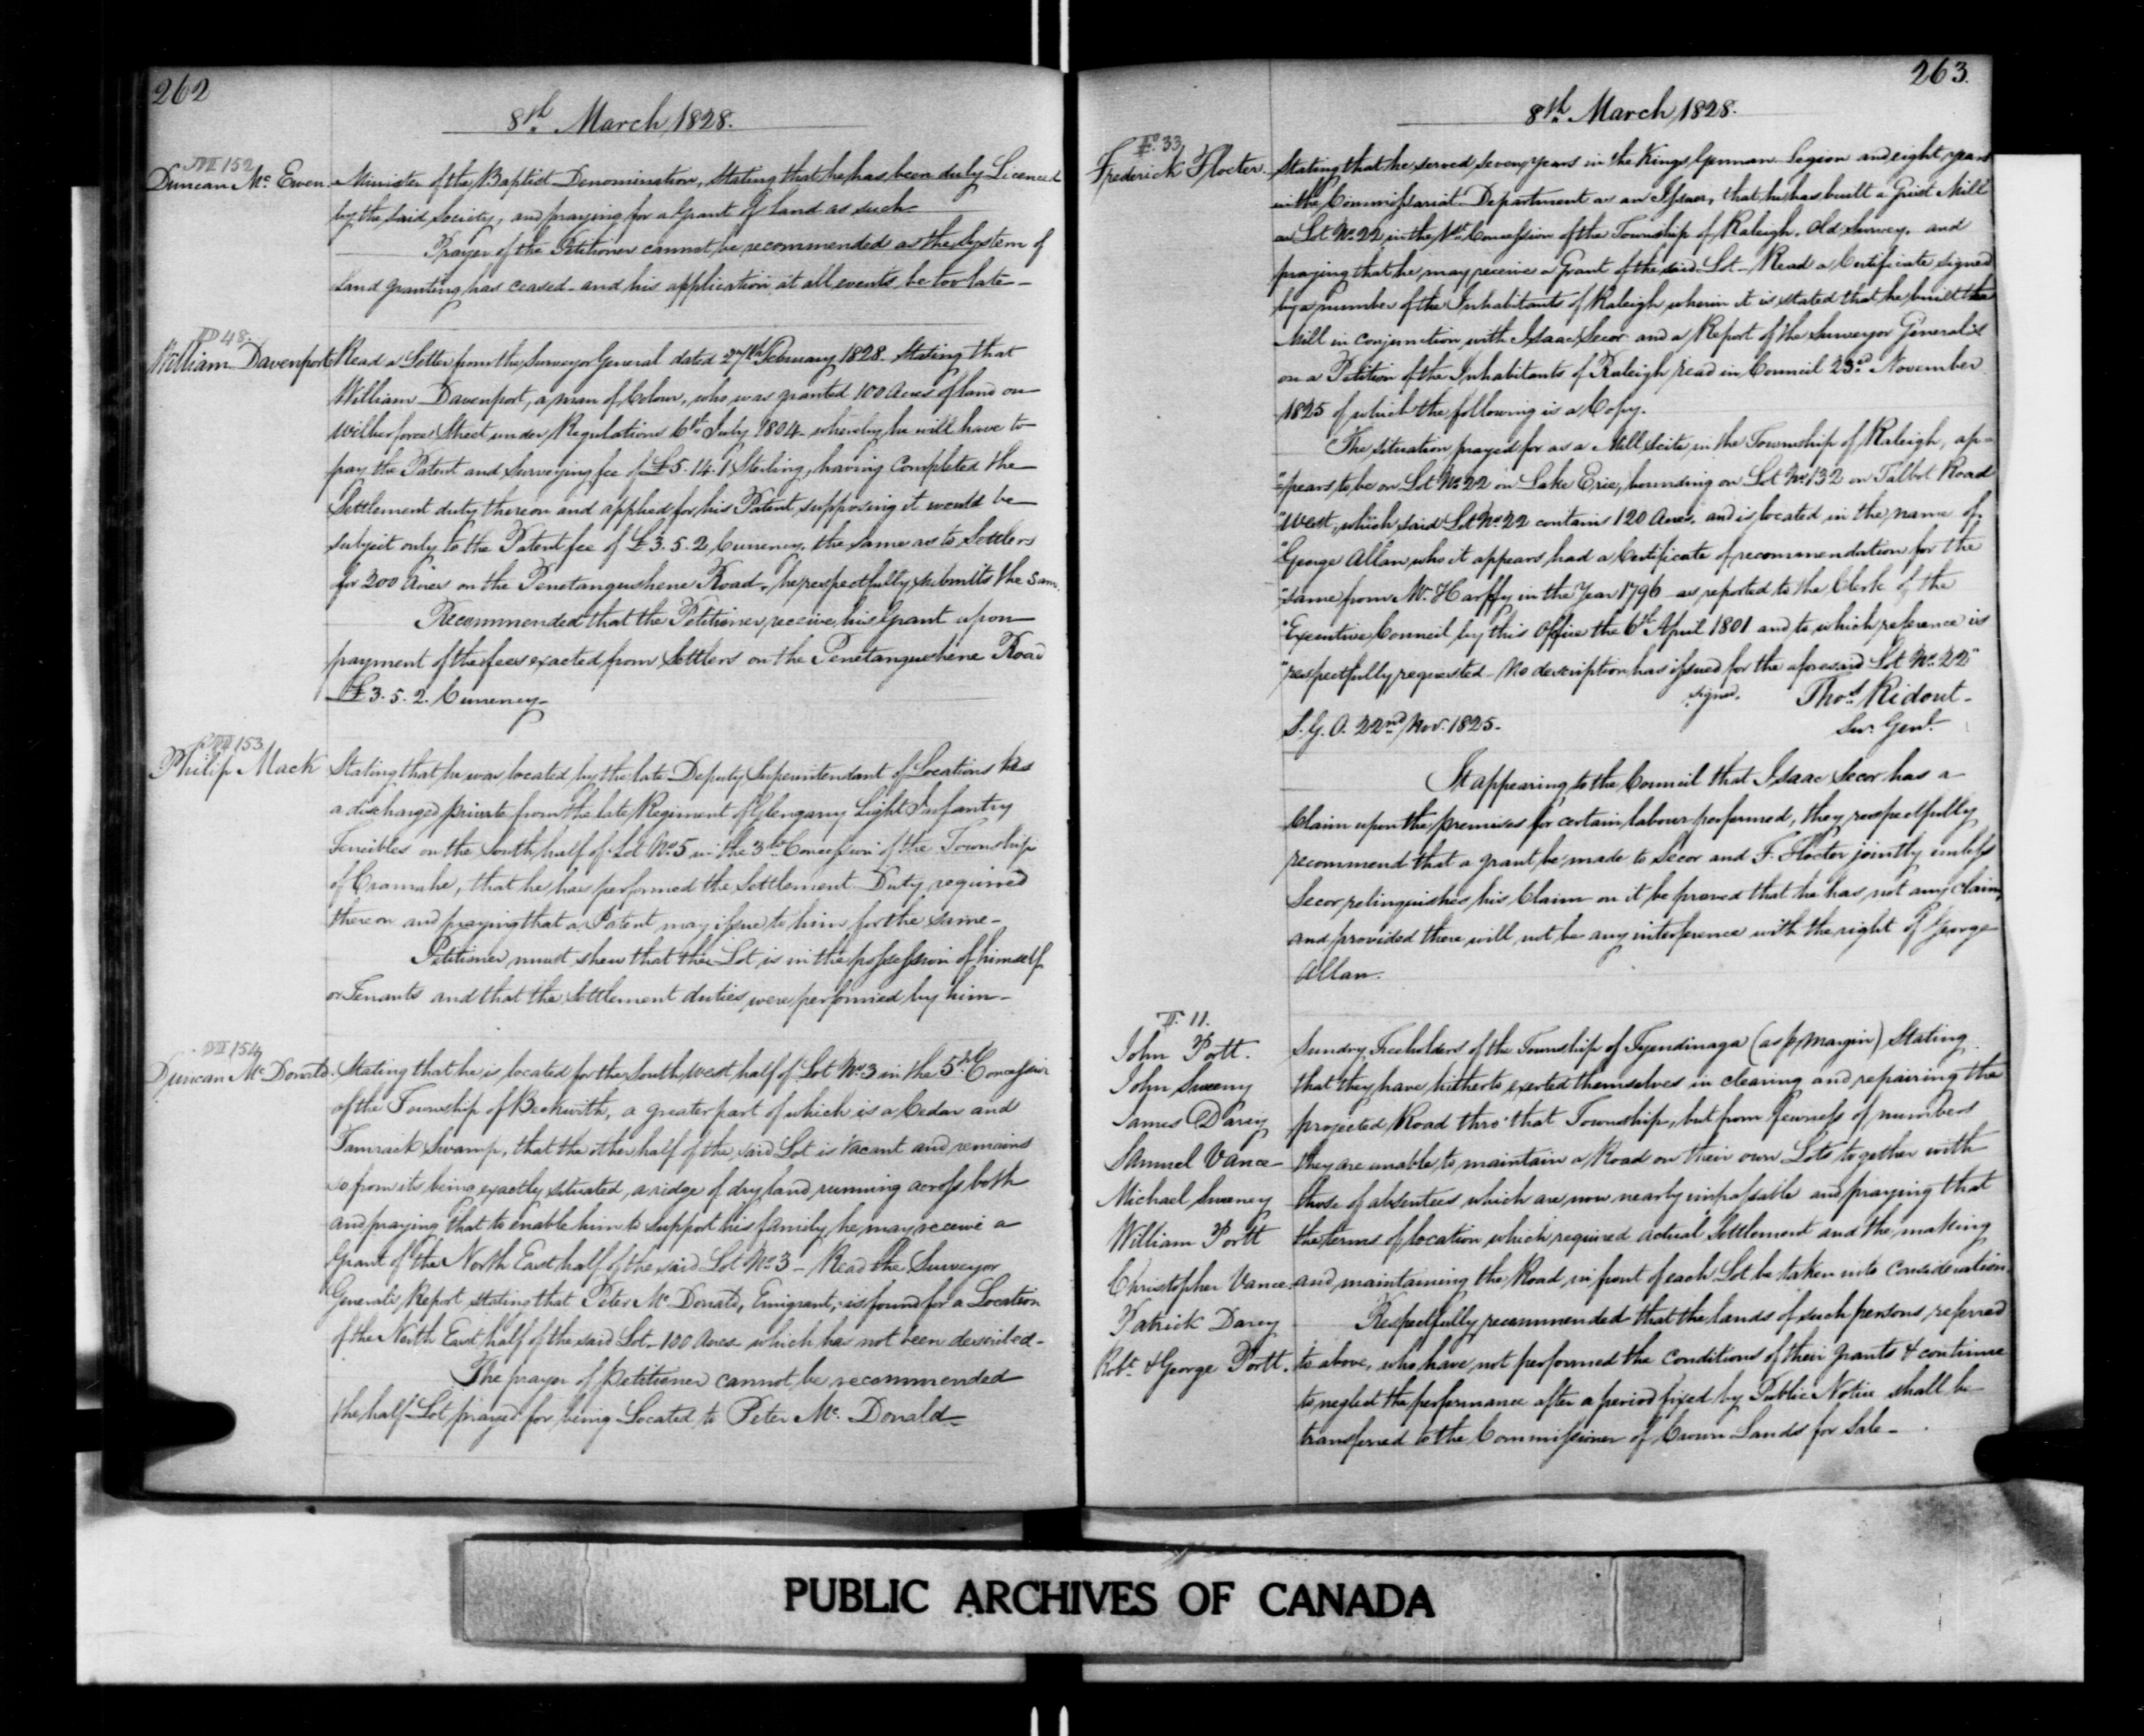 262
8th March 1828.
152
Duncan Mc Ewen. Minister of the Baptist Denomination, stating that he has been duly Licenced
by the said Society, and praying for a Grant of land as such.
Prayer of the Petitioner cannot be recommended as the System of
Land granting has ceased - and his application at all events be too late -
D 48.
William Davenport Read a Letter from the Surveyor General dated 27th February 1828. Stating that
William Davenport, a man of Colour, who was granted 100 Acres of land on
Wilberforce Street under Regulations 6th July 1804 whereby he will have to
pay the Patent and Surveying fee of £5.14.1 Sterling, having Completed the
Settlement duty thereon and applied for his Patent, supposing it would be
subject only to the Patent fee of £3.5.2 Currency, the same as to Settlers
for 200 Acres on the Penetanguishene Road, he respectfully submits the same.
Recommended that the Petitioner receive his Grant upon
payment of the fees exacted from Settlers on the Penetanguishene Road
£3.5.2. Currency -
153
Philip Mack Stating that he was located by the late Deputy Superintendant of Locations as
a discharged private from the late Regiment of Glengarry Light Infantry
Fencibles on the South half of Lot No 5 in the 3d Concession of the Township
of Cramahe, that he has performed the Settlement Duty required
thereon and praying that a Patent may issue to him for the same -
Petitioner must shew that the Lot is in the possession of himself
or Tenants and that the Settlement duties were performed by him -
154
Duncan Mc Donald. Stating that he is located for the South west half of Lot No 3 in the 5th Concession
of the Township of Beckwith, a greater part of which is a Cedar and
Tamrack Swamp, that the other half of the said Lot is vacant and remains
so from its being exactly situated, a ridge of dry land running across both
and praying that to enable him to support his family, he may receive a
Grant of the North East half of the said Lot No 3 - Read the Surveyor
Generals Report stating that Peter Mc Donald, Emigrant, is found for a Location
of the North East half of the said Lot - 100 Acres which has not been described -
The prayer of Petitioner cannot be recommended
the half Lot prayed for being Located to Peter Mc Donald -
263.
8th March 1828.
F. 33
Frederick Flocter. Stating that he served seven years in the Kings German Legion and eight years
in the Commissariat Department as an Issuer, that he has built a Grist Mill
on Lot No 22 in the 1st Concession of the Township of Raleigh, Old Survey, and
praying that he may receive a Grant of the said Lot - Read a Certificate signed
by a number of the Inhabitants of Raleigh wherein it is stated that he built the
Mill in conjunction with Isaac Secor and a Report of the Surveyor General's
on a Petition of the Inhabitants of Raleigh read in Council 23rd November
1825 of which the following is a Copy.
The situation prayed for as a Mill Scite in the Township of Raleigh, ap-
"pears to be on Lot No 22 on Lake Erie, bounding on Lot No 132 on Talbot Road
"West, which said Lot No 22 contains 120 Acres, and is located in the name of
"George Allan who it appears had a Certificate of recommendation for the
"same from Mr. Harffy in the Year 1796 as reported to the Clerk of the
"Executive Council by this Office the 6th April 1801 and to which reference is
"respectfully requested - No description has issued for the aforesaid Lot No. 22"
signed. Thos Ridout -
S. G. O. 22nd Nov. 1825. Sur. Genl.
It appearing to the Council that Isaac Secor has a
Claim upon the premises for certain labour performed, they respectfully
recommend that a grant be made to Secor and F. Flocter jointly unless
Secor relinquishes his Claim or it be proved that he has not any claim,
and provided there will not be any interference with the right of George
Allan.
T. 11.
John Portt. Sundry Freeholders of the Township of Tyendinaga (as pr margin) Stating
John Sweeny that they have hitherto exerted themselves in clearing and repairing the
James Darcy projected Road thro' that Township, but from fewness of numbers
Samuel Vance they are unable to maintain a Road on their own Lots together with
Michael Sweeney those of absentees which are now nearly impassable and praying that
William Portt the terms of location which required actual Settlement and the making
Christopher Vance. and maintaining the Road in front of each Lot be taken into Consideration.
Patrick Darcy Respectfully recommended that the lands of such persons referred
Robt. & George Portt. to above, who have not performed the Conditions of their Grants & continue
to neglect the performance after a period fixed by Public Notice shall be
transferred to the Commissioner of Crown Lands for Sale -
PUBLIC ARCHIVES OF CANADA